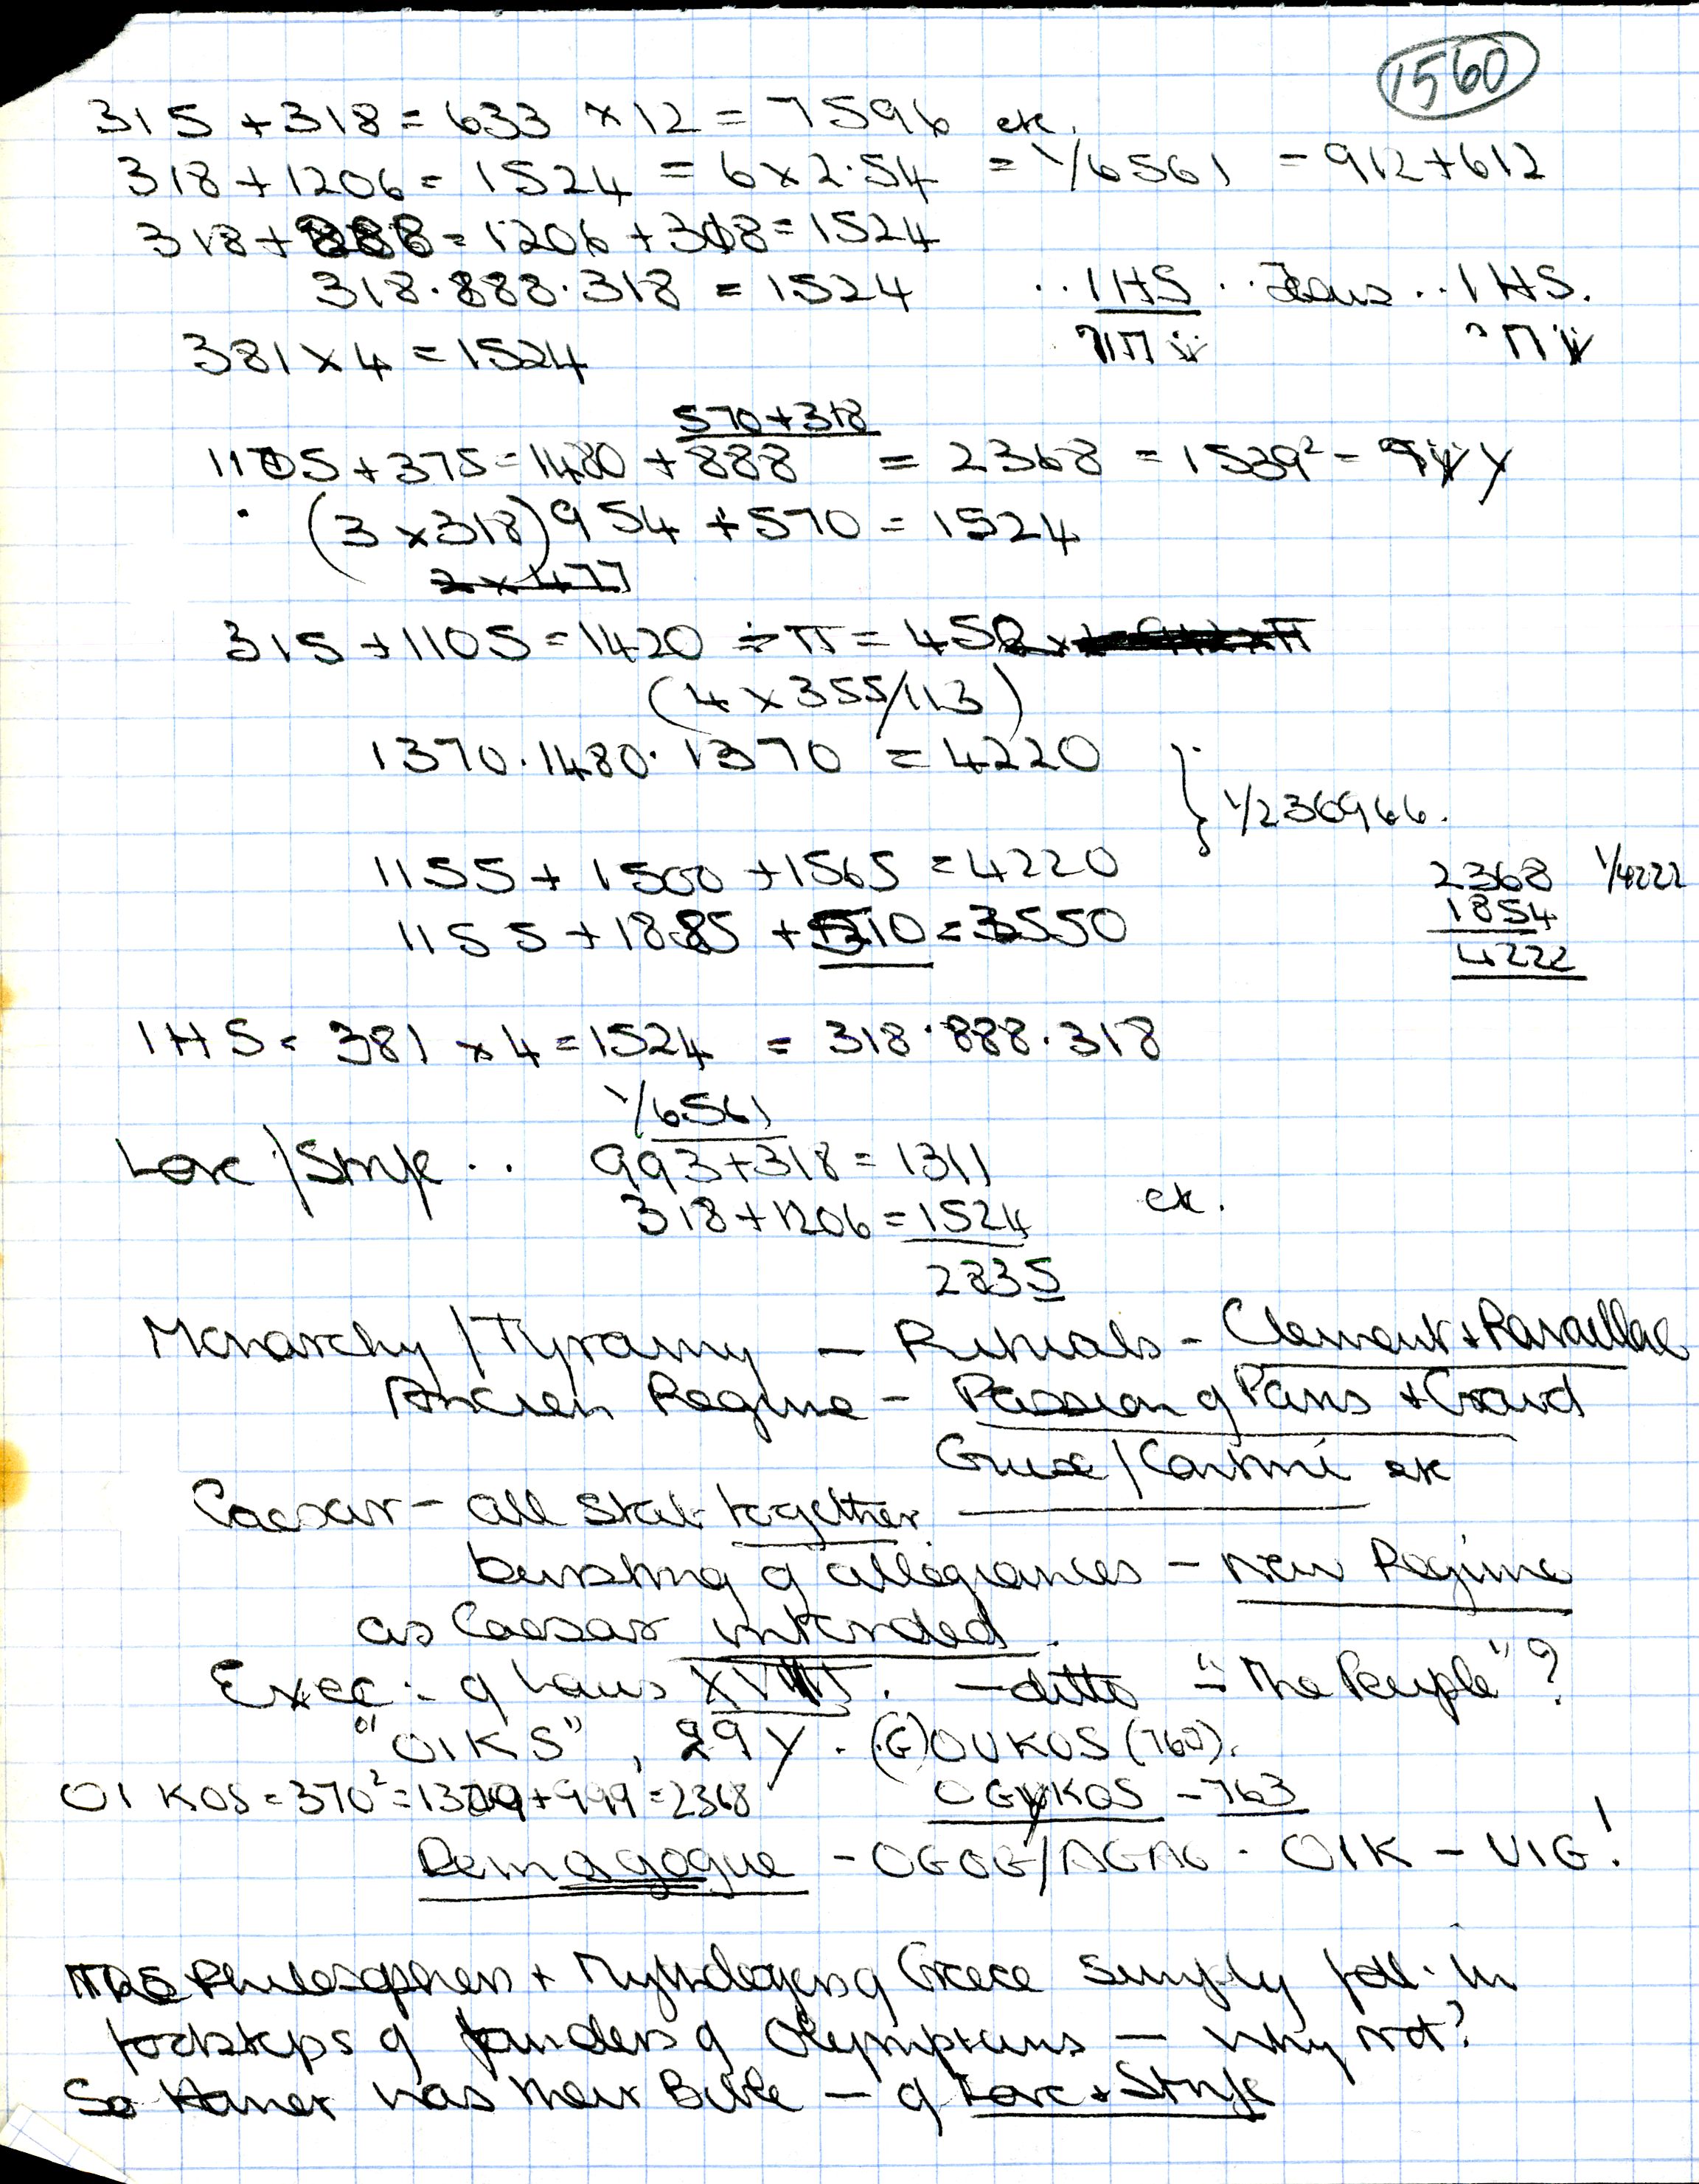 1560
315 + 318 = 633 × 12 = 7596 etc.
318 + 1206 = 1524 = 6 × 2·54 = 1/6561 = 912 + 612
318 + 888 = 1206 + 318 = 1524
318·888·318 = 1524 ..IHS..Jesus..IHS.
381 × 4 = 1524
570 + 318
1105 + 375 = 1480 + 888 = 2368 = 1539² =
(3 × 318) 954 + 570 = 1524
2 × 477
315 + 1105 = 1420 ÷ π = 452
(4 × 355/113)
1370·1480·1370 = 4220
} 1/230966.
1155 + 1500 + 1565 = 4220
1155 + 1885 + 510 = 3550
2368 1/4222
1854
4222
IHS = 381 × 4 = 1524 = 318·888·318
1/6561
Love / Strife .. 993 + 318 = 1311
318 + 1206 = 1524 etc.
2835
Monarchy / Tyranny — Rituals - Clement + Ravaillac
Ancien Regime - Passion of Paris + Crowd
Guise / etc
Caesar - all State together
bursting of allegiances - New Regime
as Caesar intended.
Exec: of Louis - ditto - "The People"?
"OIKS", 29Y. (G)OUKOS (760).
OIKOS = 370² = 1369 + 999 = 2368 OGYKOS - 763
Demagogue - OGOG/AGAG - OIK - VIG!
The Philosophers + Mythologers of Greece simply foll. in
footsteps of founders of Olympians — why not?
So Homer was their Bible — of Love + Strife